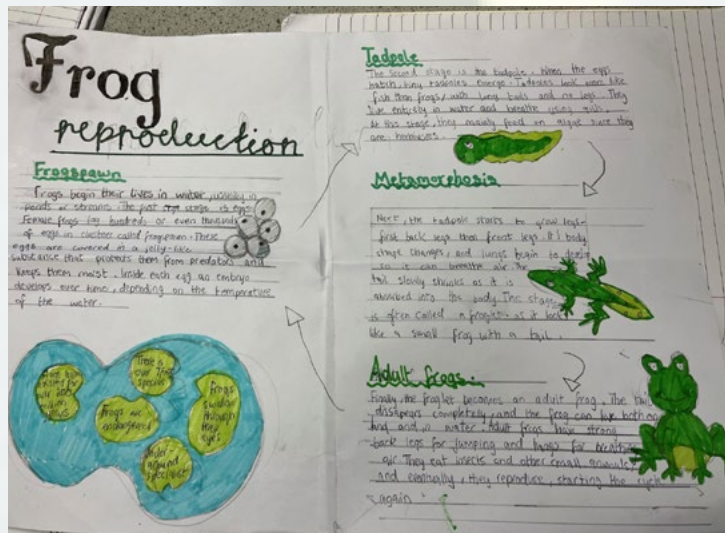 Frog
reproduction
Frogspawn
Frogs begin their lives in water, usually in
ponds or streams. The first stage is eggs
Female frogs lay hundreds or even thousands
of eggs in clusters called frogspawn. These
eggs are covered in a jelly-like
substance that protects them from predators and
keeps them moist. Inside each egg an embryo
develops over time, depending on the temperature
of the water.
There is
over
species
Frogs are
endangered
Frogs
swallow
through
their
eyes
Tadpole
The second stage is the tadpole. When the eggs
hatch, tiny tadpoles emerge. Tadpoles look more like
fish than frogs, with long tails and no legs. They
live entirely in water and breathe using gills.
At this stage, they mainly feed on algae since they
are herbivores.
Metamorphosis
Next, the tadpole starts to grow legs-
first back legs then front legs. It's body
shape changes, and lungs begin to
so it can breathe air. the
tail slowly shrinks as it is
absorbed into the body. This stage
is often called a froglet as it look
like a small frog with a tail.
Adult frogs.
Finally, the froglet becomes an adult frog. The tail
completely, and the frog can live both on
and in water. Adult frogs have strong
back legs for jumping and lungs for breathing
air. They eat insects and other small animals
and eventually, they reproduce, starting the cycle
again